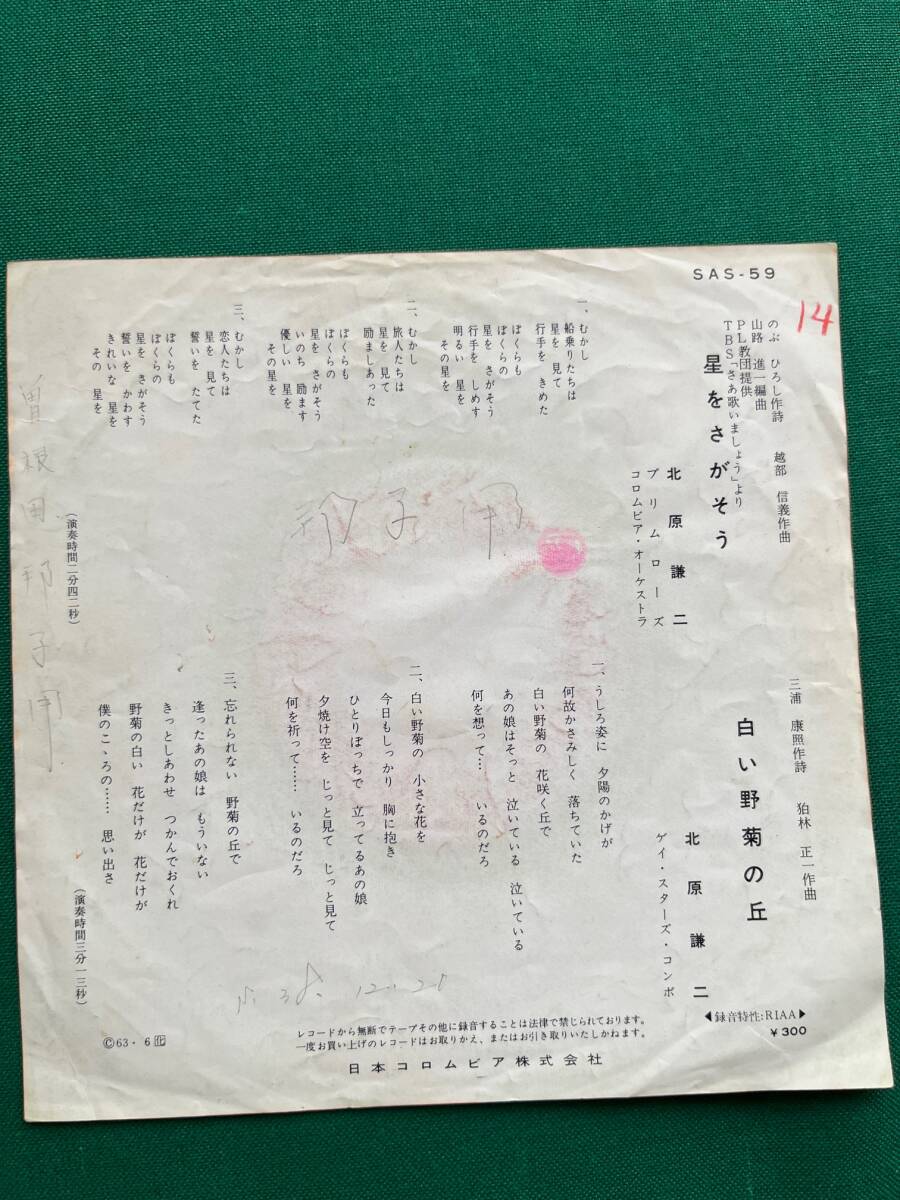 SAS-59
14
のぶ ひろし作詩 越部 信義作曲
山路 進一編曲
PL教団提供
TBS「さあ歌いましょう」より
星をさがそう
北原謙二
プリムローズ
コロムビア・オーケストラ
一、むかし
船乗りたちは
星を 見て
行手を きめた
ぼくらも
ぼくらの
星を さがそう
行手を しめす
明るい 星を
その星を
二、むかし
旅人たちは
星を 見て
励ましあった
ぼくらも
ぼくらの
星を さがそう
いのち 励ます
優しい 星を
その星を
三、むかし
恋人たちは
星を 見て
誓いを たてた
ぼくらも
ぼくらの
星を さがそう
誓いを かわす
きれいな 星を
その 星を
(演奏時間二分四二秒)
三浦 康照作詩 狛林 正一作曲
白い野菊の丘
北原謙二
ゲイ・スターズ・コンボ
一、うしろ姿に 夕陽のかげが
何故かさみしく 落ちていた
白い野菊の 花咲く丘で
あの娘はそっと 泣いている 泣いている
何を想って…… いるのだろ
二、白い野菊の 小さな花を
今日もしっかり 胸に抱き
ひとりぼっちで 立ってるあの娘
夕焼け空を じっと見て じっと見て
何を祈って…… いるのだろ
三、忘れられない 野菊の丘で
逢ったあの娘は もういない
きっとしあわせ つかんでおくれ
野菊の白い 花だけが 花だけが
僕のこゝろの…… 思い出さ
(演奏時間三分一三秒)
邦子用
曽根田邦子用
38.12.21
◀録音特性:RIAA▶
¥300
レコードから無断でテープその他に録音することは法律で禁じられております。
一度お買い上げのレコードはお取りかえ、またはお引き取りいたしかねます。
©63・6
日本コロムビア株式会社